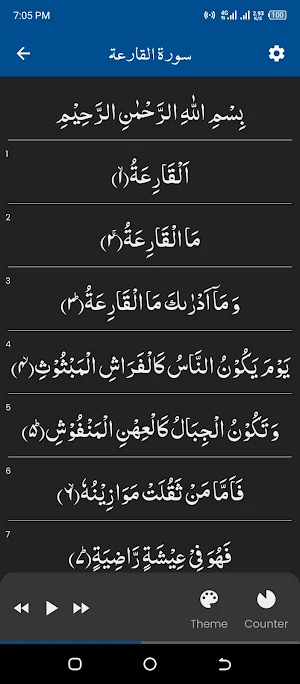 7:05 PM 4G 4G 2.93 K/S 100
سورة القارعة
بِسْمِ اللّٰهِ الرَّحْمٰنِ الرَّحِيْمِ
1
اَلْقَارِعَةُ(۱ۙ)
2
مَا الْقَارِعَةُ(۲ۚ)
3
وَ مَاۤ اَدْرٰىكَ مَا الْقَارِعَةُ(۳ؕ)
4
یَوْمَ یَكُوْنُ النَّاسُ كَالْفَرَاشِ الْمَبْثُوْثِ(۴ۙ)
5
وَ تَكُوْنُ الْجِبَالُ كَالْعِهْنِ الْمَنْفُوْشِ(۵ؕ)
6
فَاَمَّا مَنْ ثَقُلَتْ مَوَازِیْنُهٗ(۶ۙ)
7
فَهُوَ فِیْ عِیْشَةٍ رَّاضِیَةٍ(۷ؕ)
Theme Counter